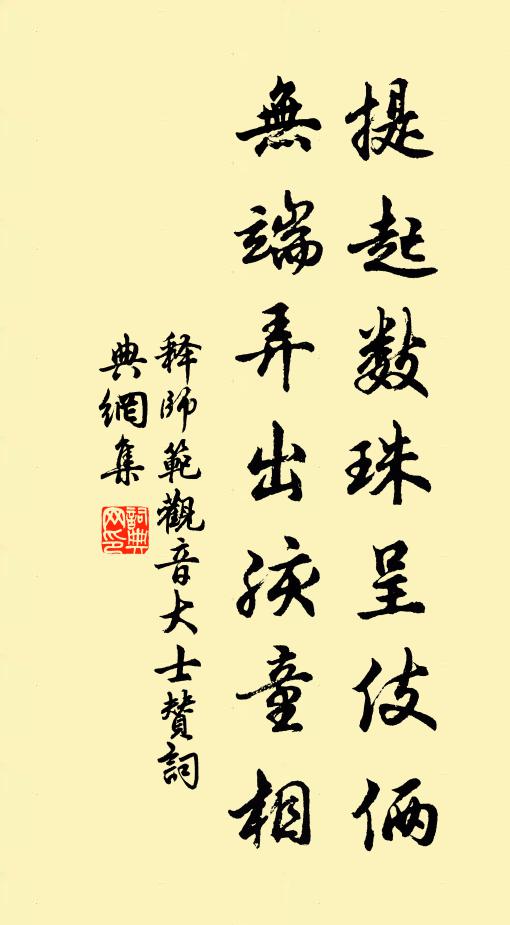 提起數珠呈伎倆
無端弄出孩童相
释師範觀音大士贊詞
典網集
詞典
网印